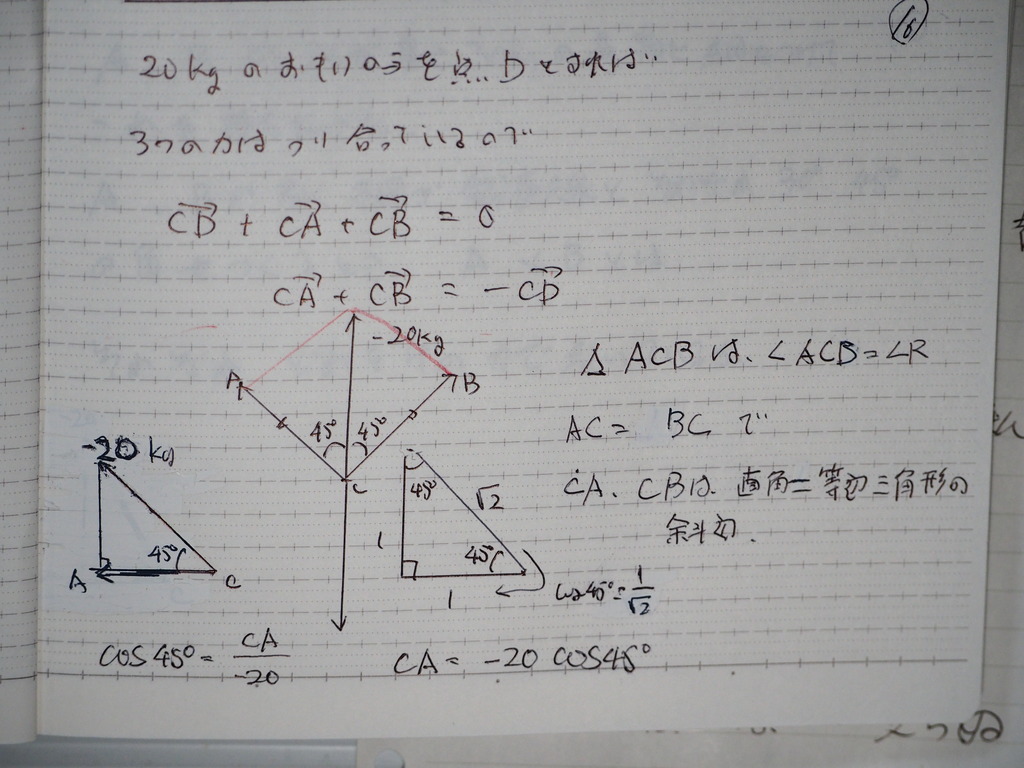 16
20kg のおもりのうを点 D とすれば
3つの力は つり合っているので
→CB + →CA + →CB = 0
→CA + →CB = -→CD
-20kg
A
B
45° 45°
C
△ ACB は、∠ACB = ∠R
AC = BC で
CA、CBは、直角二等辺三角形の
斜辺.
-20 kg
45°
A
C
45°
√2
1
45°
1
cos45° = 1/√2
cos 45° = CA/-20
CA = -20 cos45°